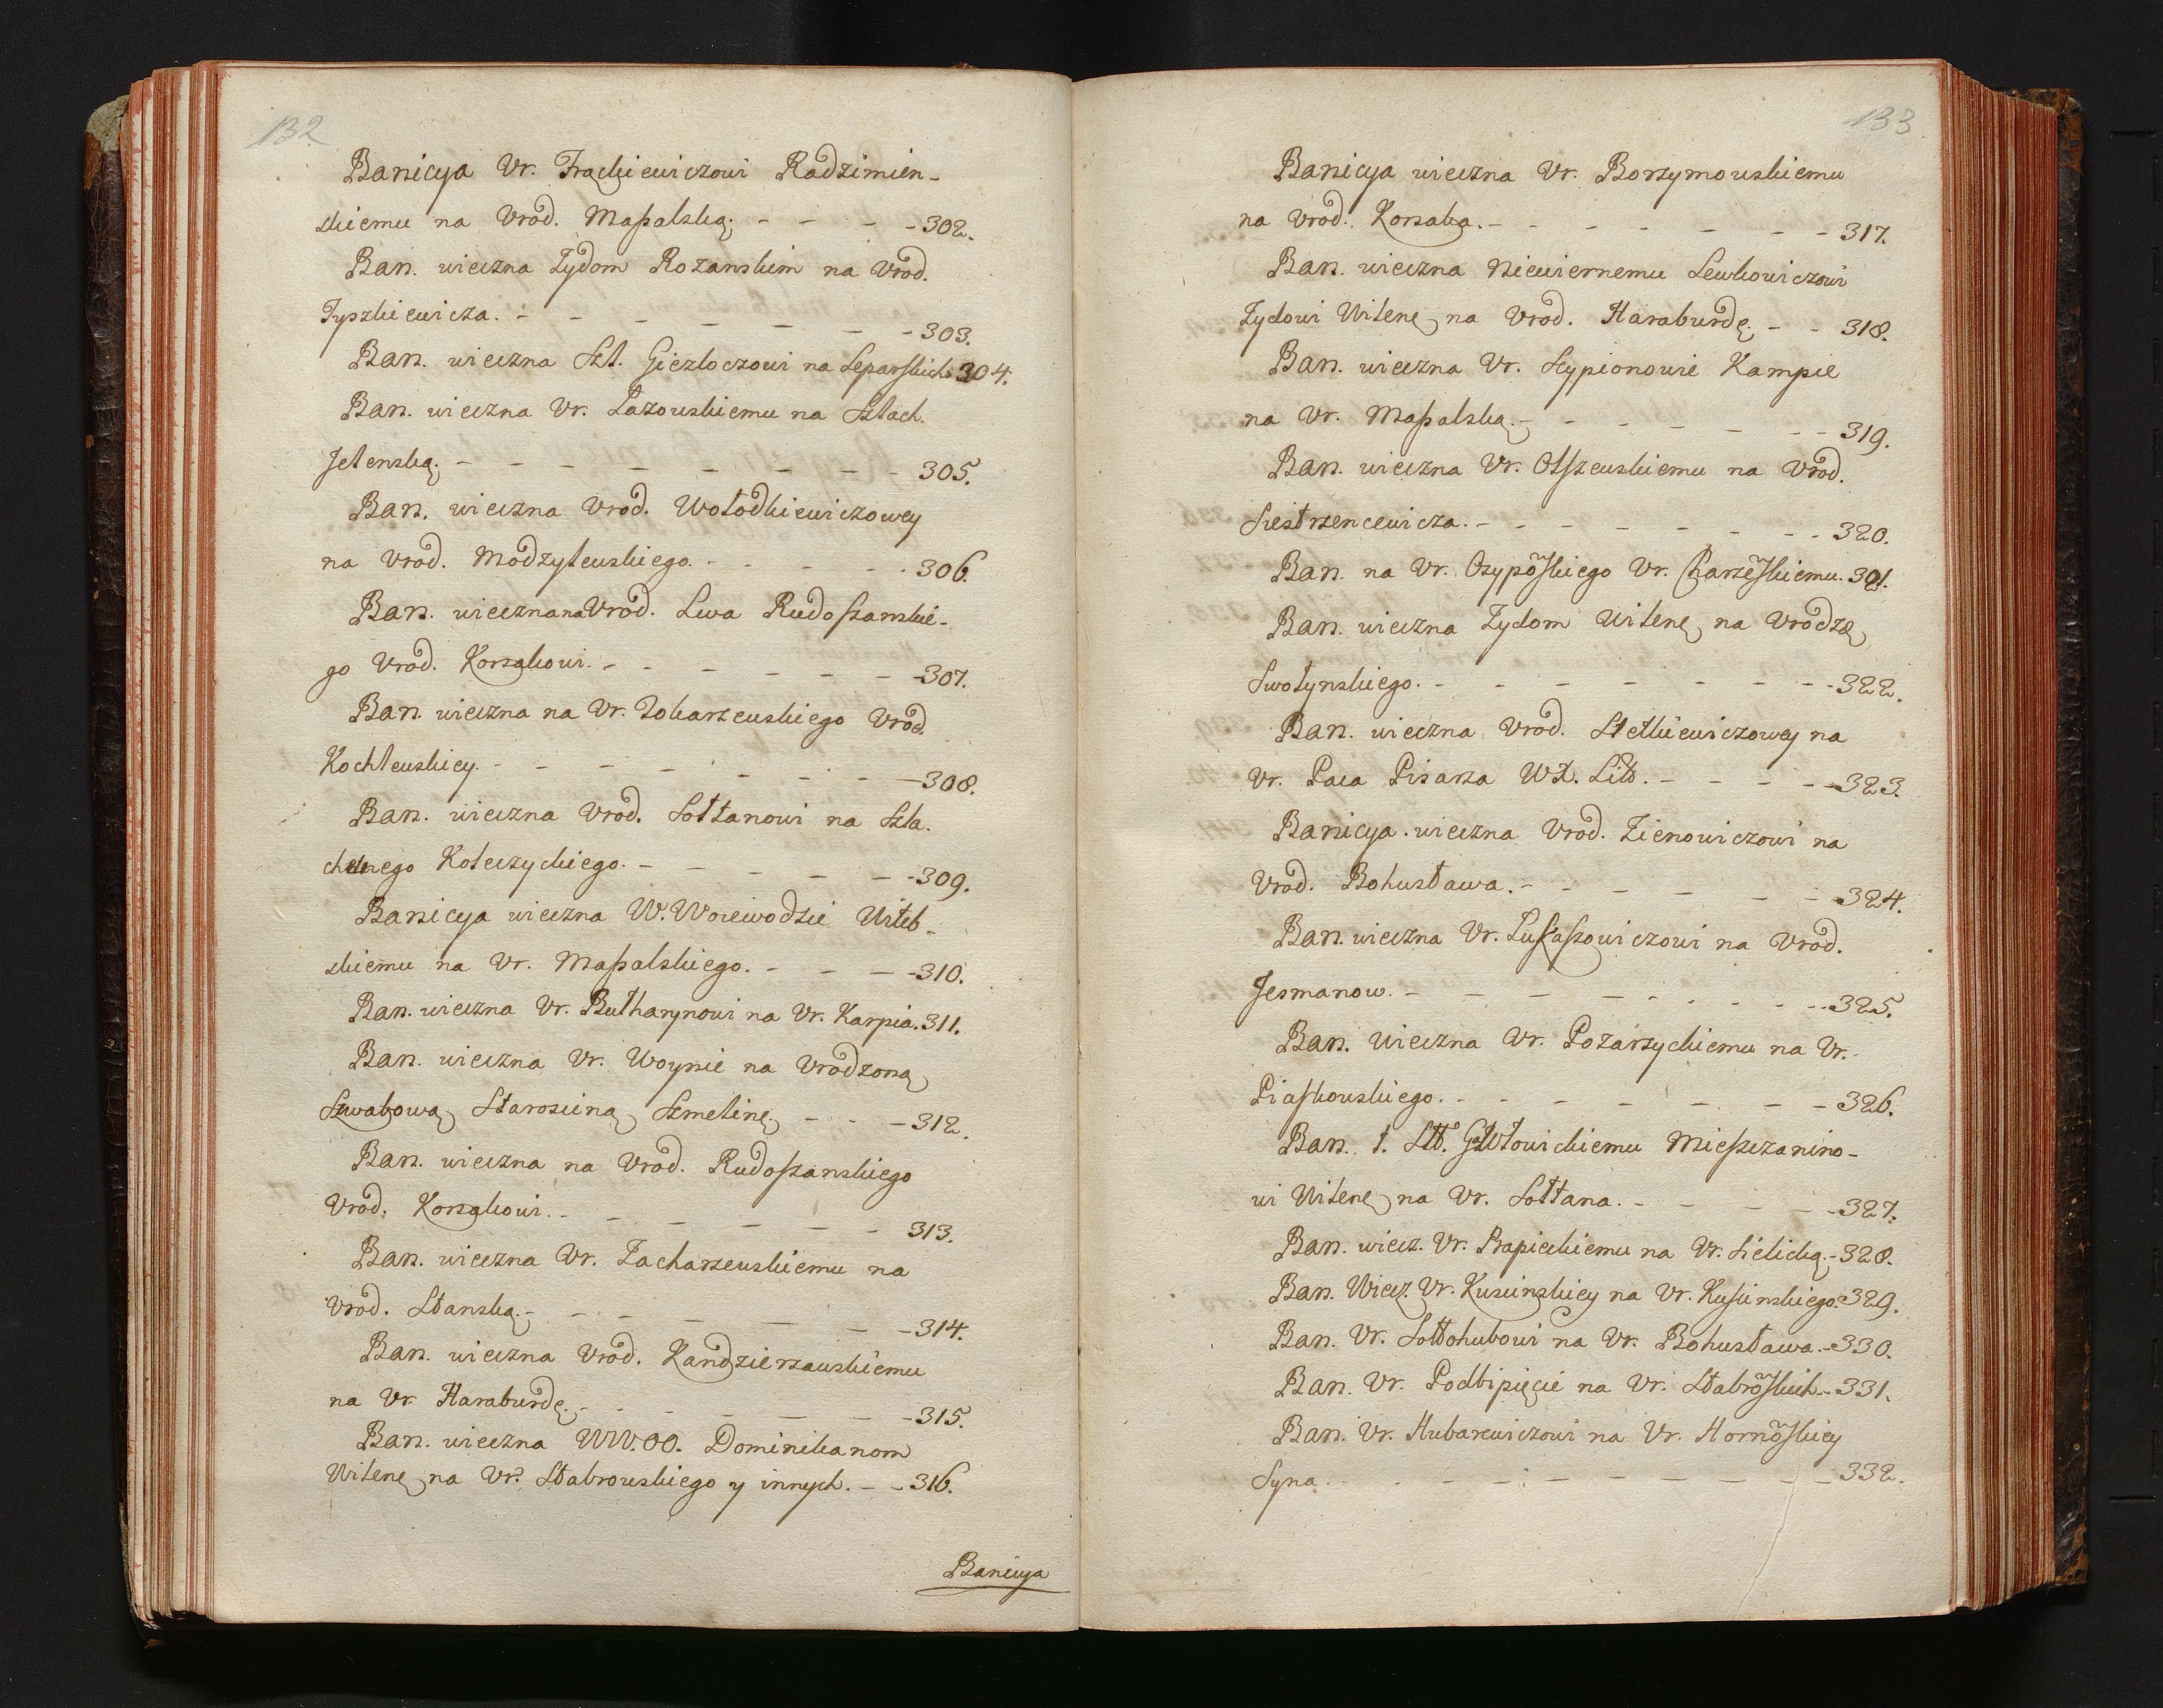 132
Banicya Vr. Frąckiewiczowi Radzimien-
skiemu na Vrod. Maßalską. - - - - 302.
Ban. wieczna Zydom Rozanskim na Vrod.
Tyszkiewicza. - - - - - - - - 303.
Ban. wieczna Szl. Giezłoczowi na Leparskich 304.
Ban. wieczna Vr. Łazowskiemu na Szlach.
Jelenską. - - - - - - - - - 305.
Ban. wieczna Vrod. Wołodkiewiczowey
na Vrod. Modzylewskiego. - - - - 306.
Ban. wieczna na Vrod. Lwa Rudoszanskie-
go Vrod. Korsakowi. - - - - - - 307.
Ban. wieczna na Vr. Tokarzewskiego Vrod.
Kochlewskiey. - - - - - - - - 308.
Ban. wieczna Vrod. Sołtanowi na Szla-
chetnego Koleczyckiego. - - - - - - 309.
Banicya wieczna W. Woiewodzie Witeb-
skiemu na Vr. Maßalskiego. - - - - 310.
Ban. wieczna Vr. Bułharynowi na Vr. Karpia. 311.
Ban. wieczna Vr. Woynie na Vrodzoną
Szwabową Starościną Szmeliną - - - 312.
Ban. wieczna na Vrod. Rudoszanskiego
Vrod. Korsakowi. - - - - - - 313.
Ban. wieczna Vr. Zacharzewskiemu na
Vrod. Stanską. - - - - - - - 314.
Ban. wieczna Vrod. Kandzierzawskiemu
na Vr. Haraburdę. - - - - - - - 315.
Ban. wieczna WW. OO. Dominikanom
Wilenę na Vr. Stabrowskiego y innych. - - 316.
Banicya
133
Banicya wieczna Vr. Borzymowskiemu
na Vrod. Korsaka. - - - - - - - 317.
Ban. wieczna Niewiernemu Lewkowiczowi
Zydowi Wilenę na Vrod. Haraburdę. - - 318.
Ban. wieczna Vr. Scypionowie Kampie
na Vr. Maßalską. - - - - - - - 319.
Ban. wieczna Vr. Olszewskiemu na Vrod.
Siestrzencewicza. - - - - - - - 320.
Ban. na Vr. Osypõskiego Vr. Charzẽskiemu. 321.
Ban. wieczna Zydom Wilenę na Vrodzę
Swołynskiego. - - - - - - - - 322.
Ban. wieczna Vrod. Stetkiewiczowey na
Vr. Paca Pisarza WX. Litt. - - - - 323.
Banicya wieczna Vrod. Zienowiczowi na
Vrod. Bohusława. - - - - - - 324.
Ban. wieczna Vr. Łukaszowiczowi na Vrod.
Jesmanow. - - - - - - - - - 325.
Ban. wieczna Vr. Pozarzyckiemu na Vr.
Piaskowskiego. - - - - - - - 326.
Ban. 1. Mieszczanino-
wi Wilenę na Vr. Sołtana. - - - - 327.
Ban. wiecz. Vr. Rapieckiemu na Vr. Sielicką. - 328.
Ban. Wiecz. Vr. Kuscinskiey na Vr. Kuscinskiego. 329.
Ban. Vr. Sołłohubowi na Vr. Bohusława. - 330.
Ban. Vr. Podbipięcie na Vr. Stabrõskich. - 331.
Ban. Vr. Hubarewiczowi na Vr. Hornõskiey
Syna. - - - - - - - - - 332.